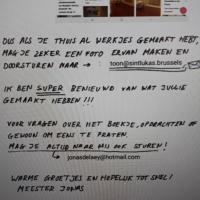 DUS ALS JE THUIS AL WERKJES GEMAAKT HEBT,
MAG JE ZEKER EEN FOTO ERVAN MAKEN EN
DOORSTUREN NAAR → : toon@sintlukas.brussels
IK BEN SUPER BENIEUWD VAN WAT JULLIE
GEMAAKT HEBBEN !!!
VOOR VRAGEN OVER HET BOEKJE, OPDRACHTEN OF
GEWOON OM EENS TE PRATEN,
MAG JE ALTIJD NAAR MIJ OOK STUREN!
jonasdelaey@hotmail.com
WARME GROETJES EN HOPELIJK TOT SNEL!
MEESTER JONAS